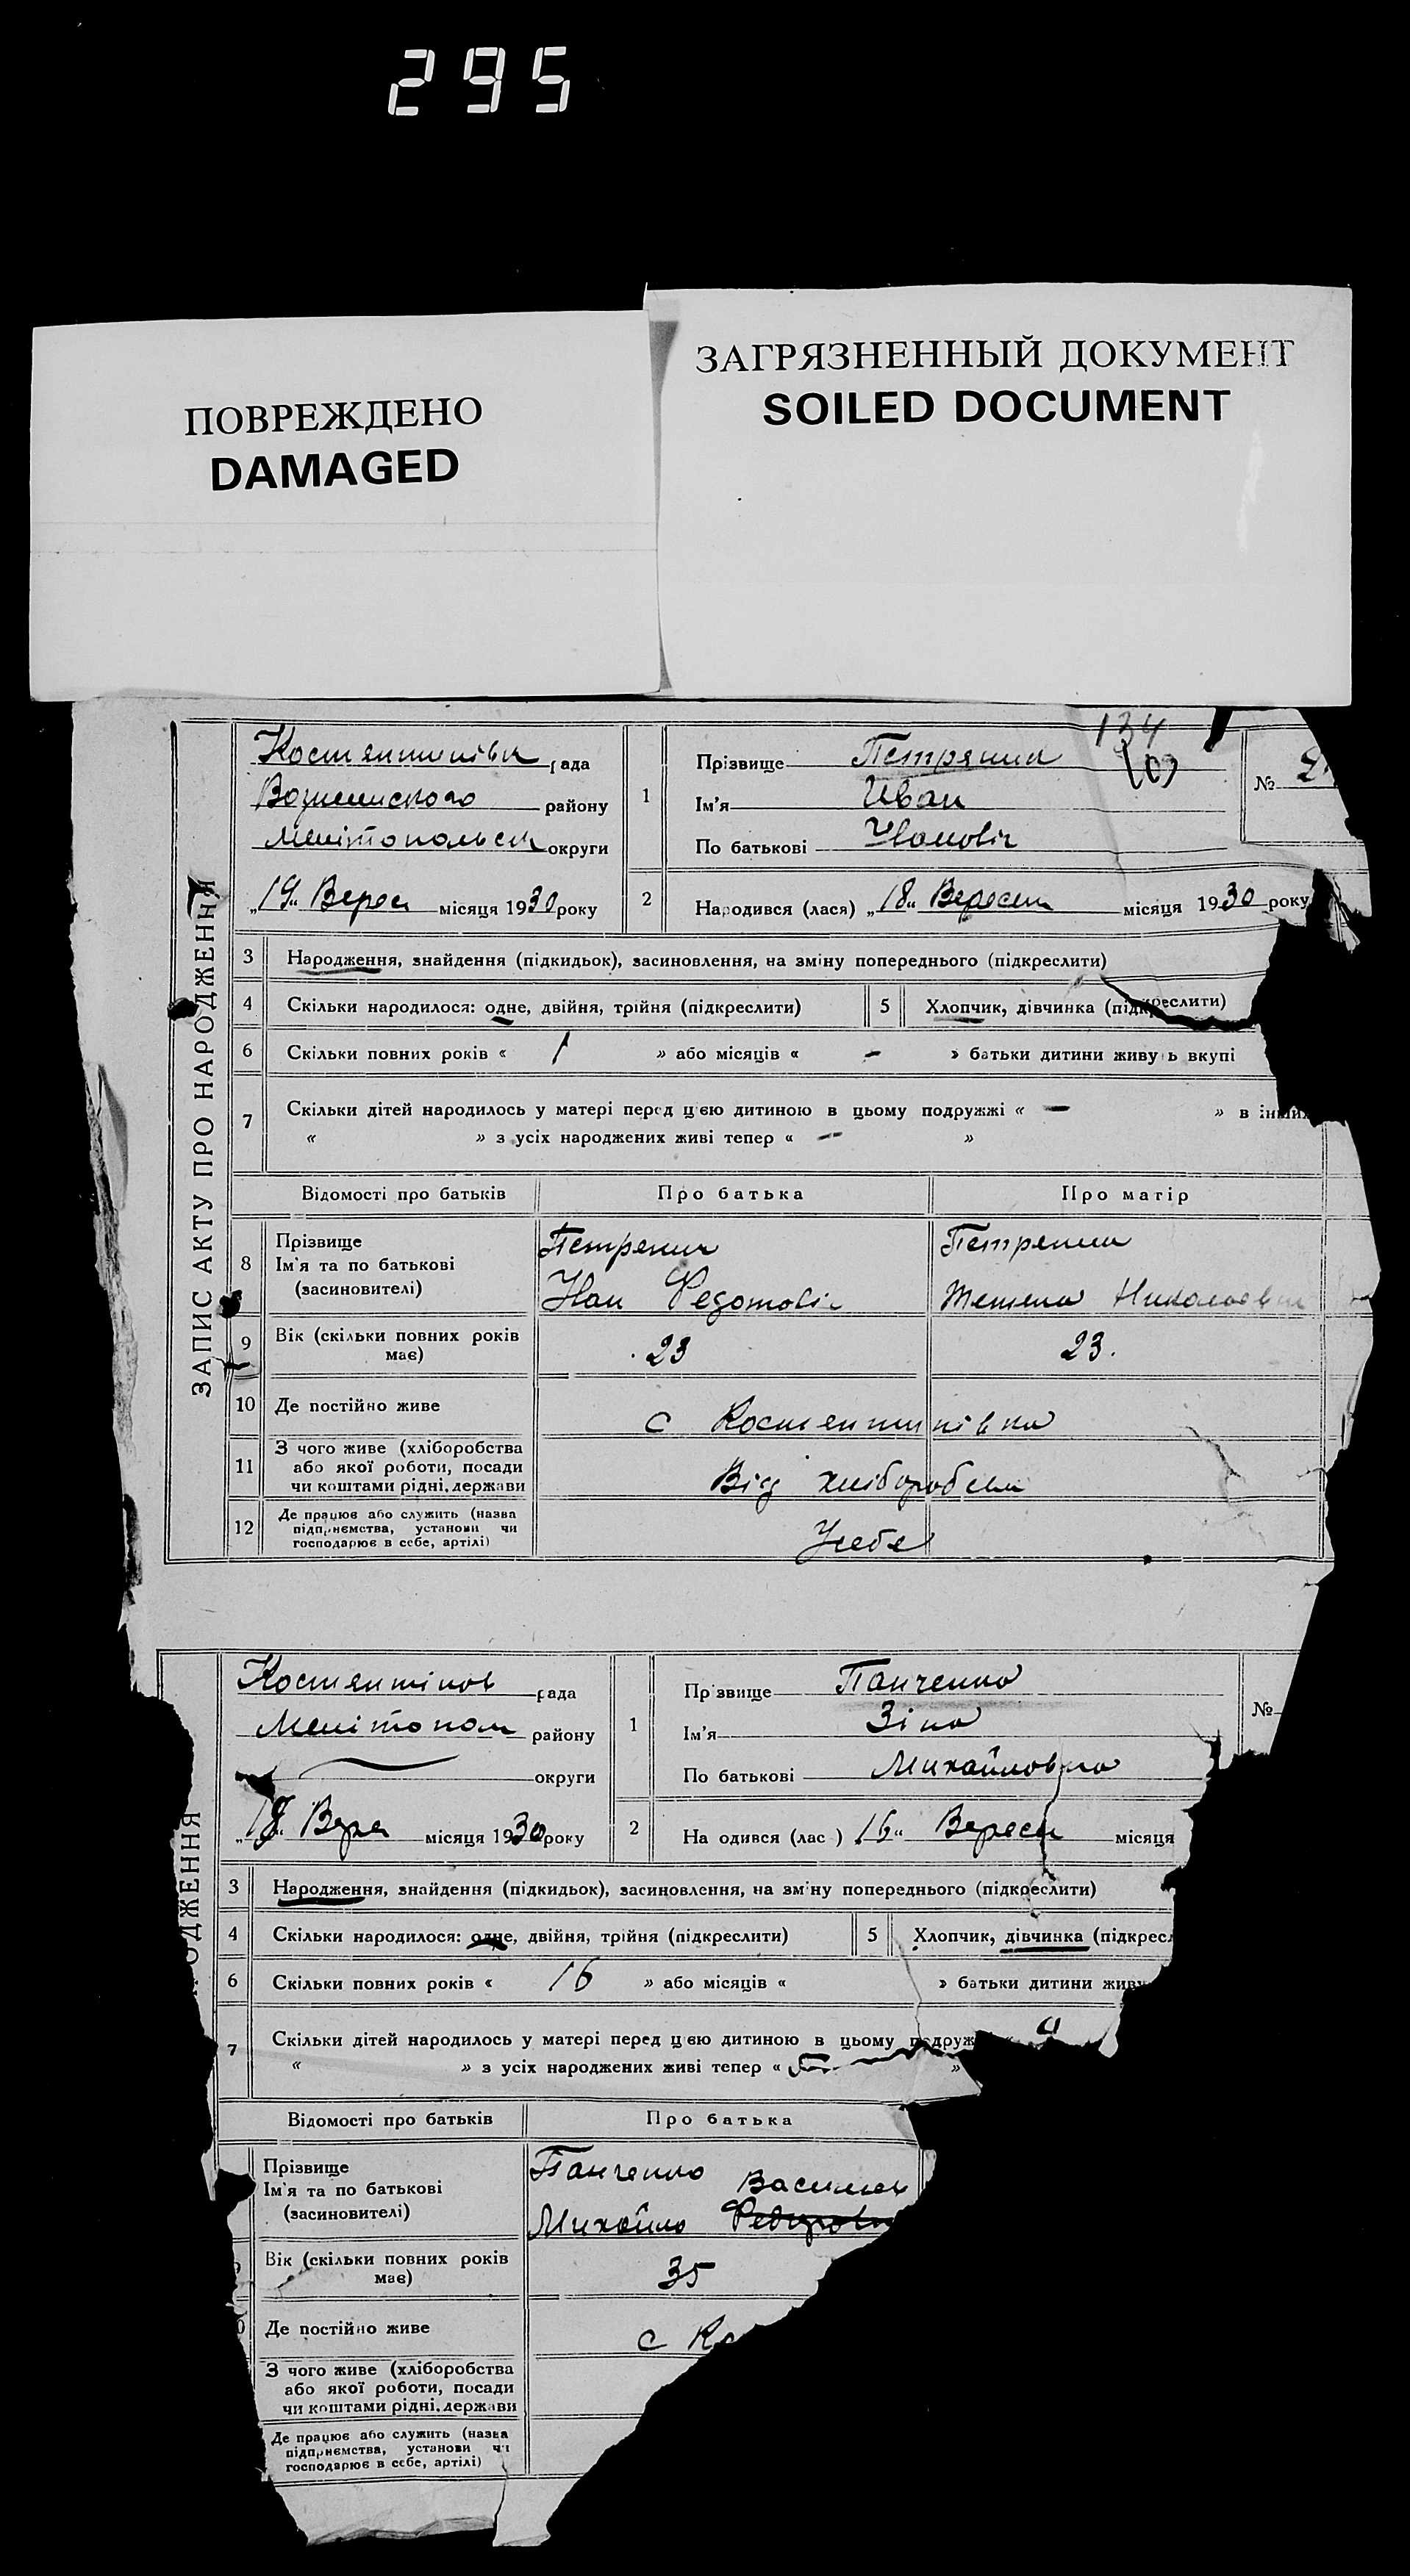 295
ПОВРЕЖДЕНО
DAMAGED
ЗАГРЯЗНЕННЫЙ ДОКУМЕНТ
SOILED DOCUMENT
134
ЗАПИС АКТУ ПРО НАРОДЖЕННЯ
Костянтинівк рада
району
Мелітопольськ округи
„19“ Верес місяця 1930 року
1
Прізвище Петряния
Ім'я Иван
По батькові Иванович
№
2 Народився (лася) „18“ Вересня місяця 1930 року
3 Народження, знайдення (підкидьок), засиновлення, на зміну попереднього (підкреслити)
4 Скільки народилося: одне, двійня, трійня (підкреслити) 5 Хлопчик, дівчинка (підкреслити)
6 Скільки повних років « 1 » або місяців « - » батьки дитини живуь вкупі
7 Скільки дітей народилось у матері перед цією дитиною в цьому подружжі « — » в інших
« » з усіх народжених живі тепер « — »
Відомості про батьків Про батька Про матір
8 Прізвище
Ім'я та по батькові
(засиновителі)
Федотовіч
Тетяна Николаевна
9 Вік (скільки повних років
має)
23 23.
10 Де постійно живе с Костянтинівка
11 З чого живе (хліборобства
або якої роботи, посади
чи коштами рідні, держави
Від хліборобства
12 Де працює або служить (назва
підприємства, установи чи
господарює в себе, артілі)
Усебе
ОДЖЕННЯ
Костянтінов рада
Мелітопол району
округи
„18“ Вере місяця 1930 року
1
Пр звище Панченко
Ім'я Зіна
По батькові Михайловна
№
2 На одився (лас ) 16“ Вересн місяця
3 Народження, знайдення (підкидьок), засиновлення, на зм ну попереднього (підкреслити)
4 Скільки народилося: одне, двійня, трійня (підкреслити) 5 Хлопчик, дівчинка (підкресл
6 Скільки повних років « 16 » або місяців « » батьки дитини живу
7 Скільки дітей народилось у матері перед цією дитиною в цьому подруж
« » з усіх народжених живі тепер « »
Відомості про батьків Про батька
Прізвище
Ім'я та по батькові
(засиновителі)
Панченко
Васильев
Михайло
Вік (скільки повних років
має)
35
Де постійно живе с Ко
З чого живе (хліборобства
або якої роботи, посади
чи коштами рідні, держави
Де працює або служить (назва
підприємства, установи чи
господарює в себе, артілі)